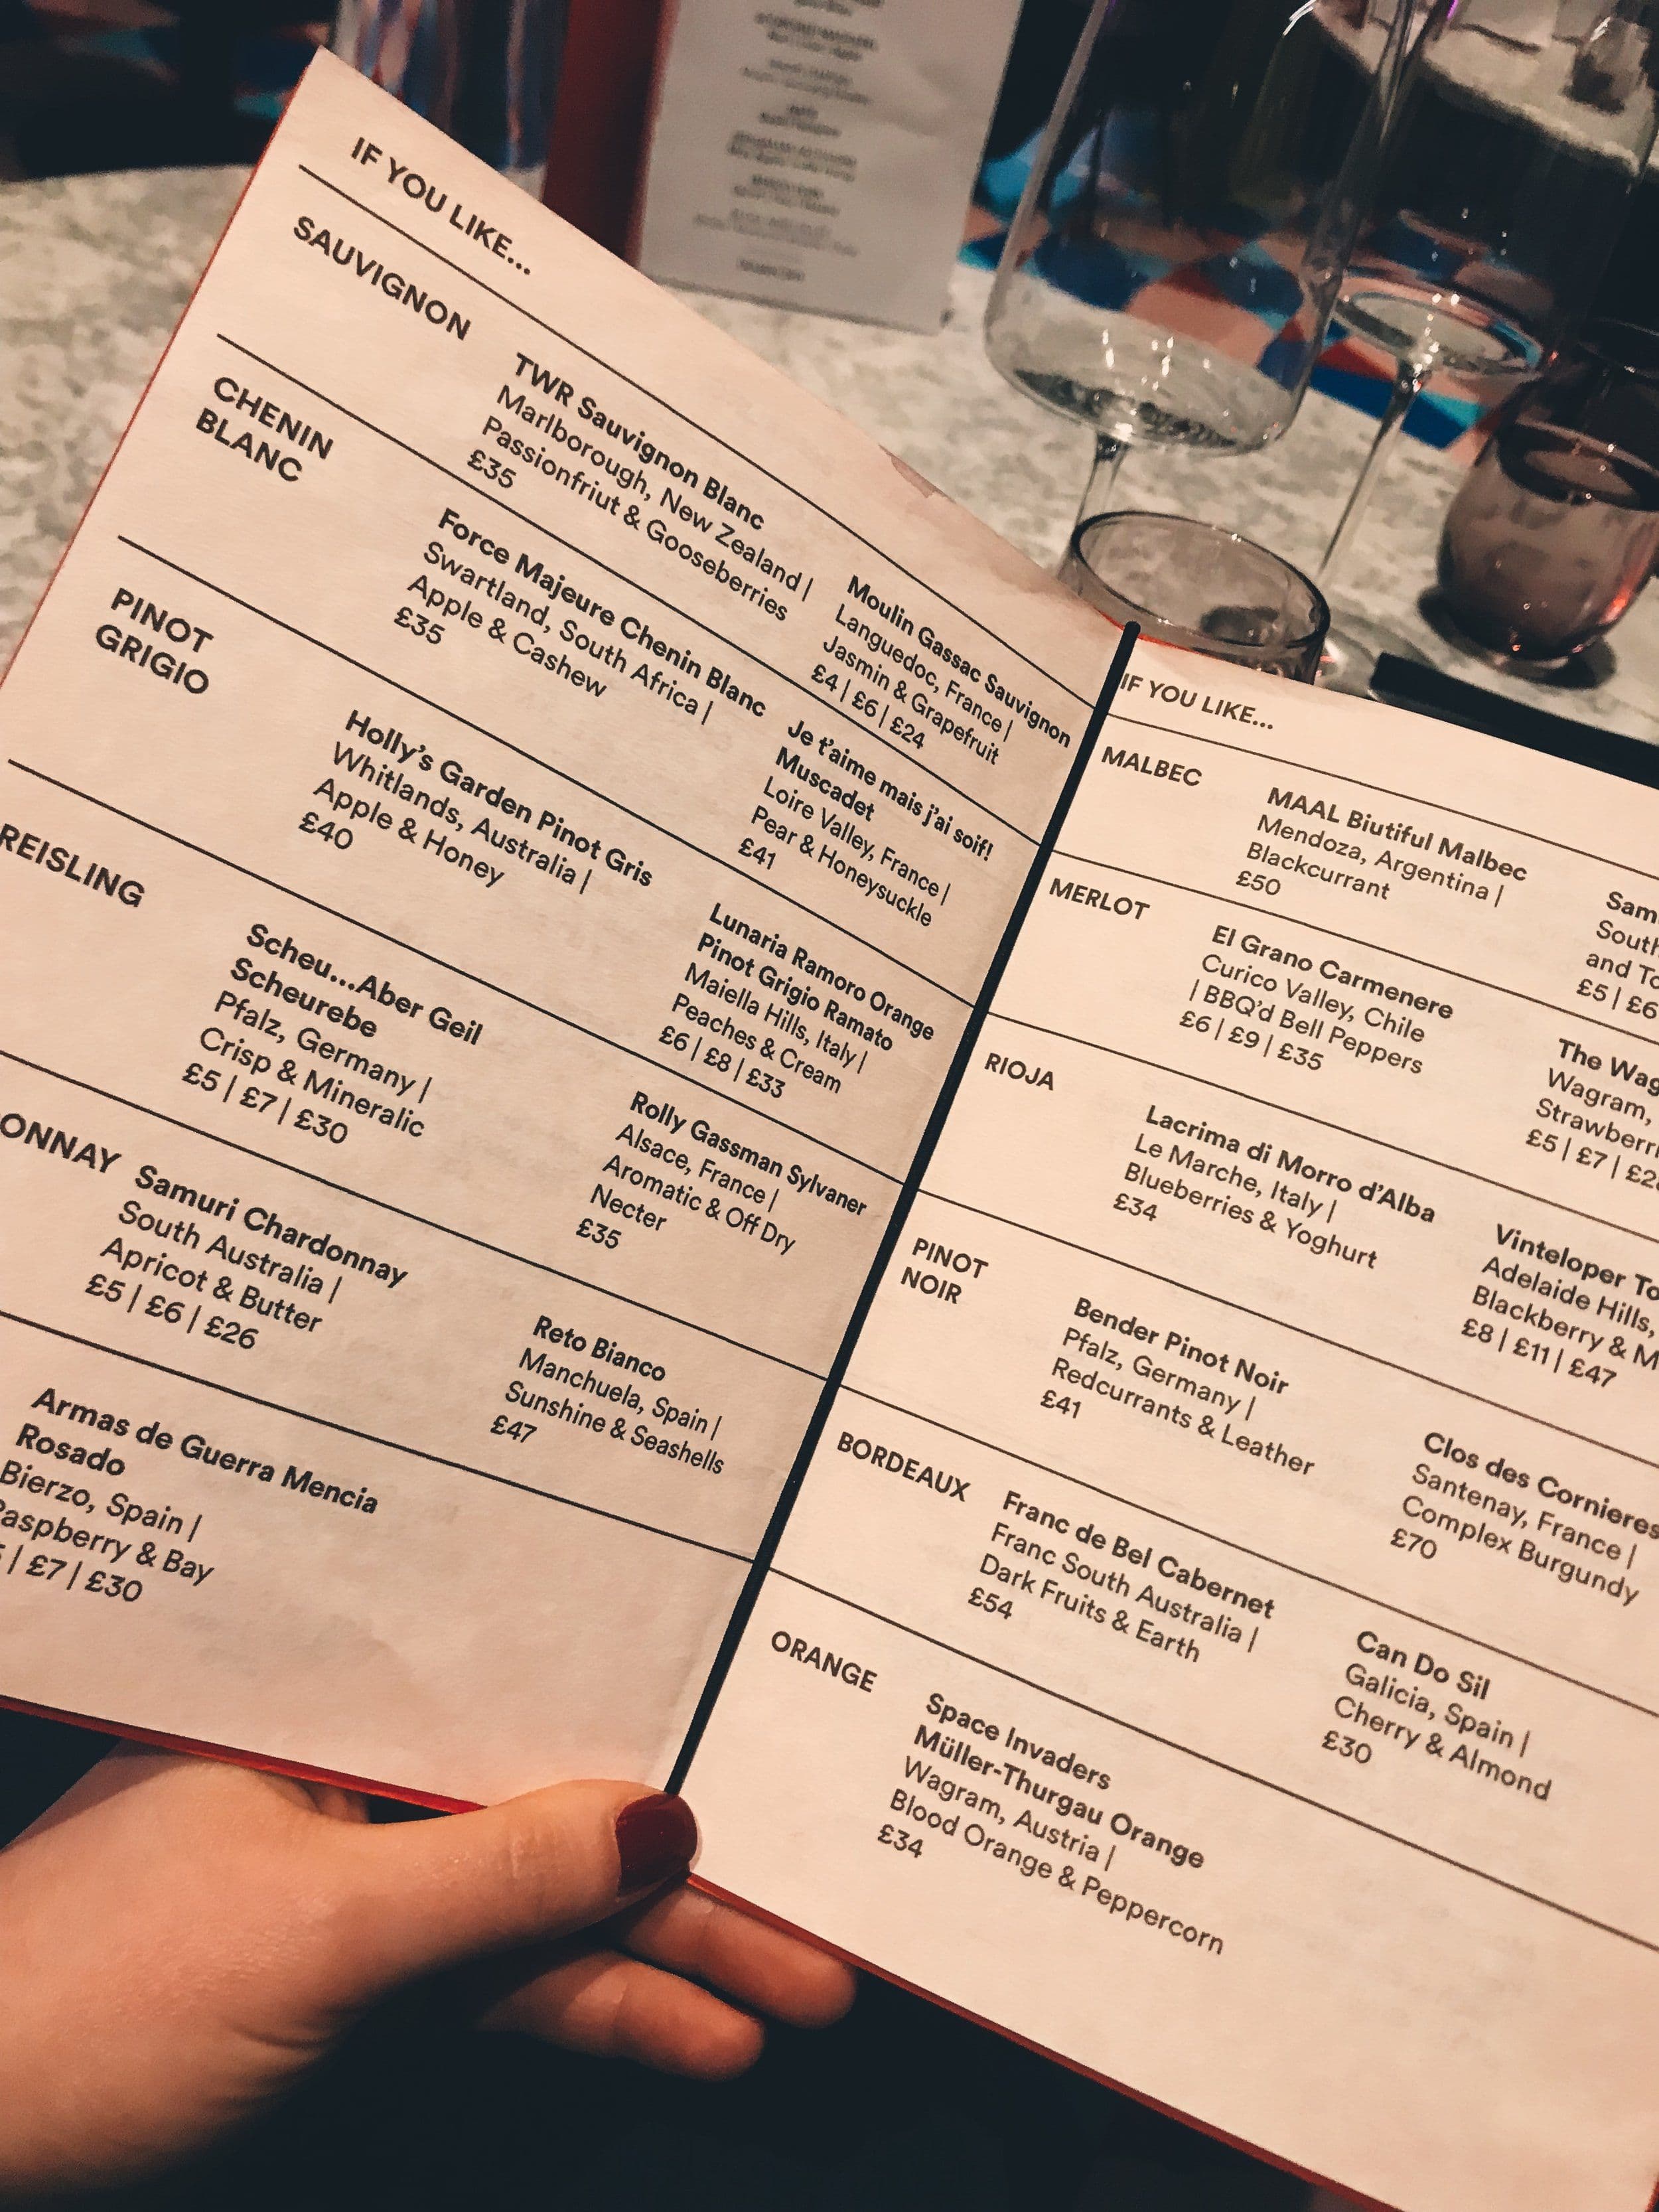 IF YOU LIKE...
SAUVIGNON
TWR Sauvignon Blanc
Marlborough, New Zealand |
Passionfriut & Gooseberries
£35
Moulin Gassac Sauvignon
Languedoc, France |
Jasmin & Grapefruit
£4 | £6 | £24
CHENIN
BLANC
Force Majeure Chenin Blanc
Swartland, South Africa |
Apple & Cashew
£35
Je t'aime mais j'ai soif!
Muscadet
Loire Valley, France |
Pear & Honeysuckle
£41
PINOT
GRIGIO
Holly's Garden Pinot Gris
Whitlands, Australia |
Apple & Honey
£40
Lunaria Ramoro Orange
Pinot Grigio Ramato
Maiella Hills, Italy |
Peaches & Cream
£6 | £8 | £33
REISLING
Scheu...Aber Geil
Scheurebe
Pfalz, Germany |
Crisp & Mineralic
£5 | £7 | £30
Rolly Gassman Sylvaner
Alsace, France |
Aromatic & Off Dry
Necter
£35
ONNAY
Samuri Chardonnay
South Australia |
Apricot & Butter
£5 | £6 | £26
Reto Bianco
Manchuela, Spain |
Sunshine & Seashells
£47
Armas de Guerra Mencia
Rosado
Bierzo, Spain |
Raspberry & Bay
| £7 | £30
IF YOU LIKE...
MALBEC
MAAL Biutiful Malbec
Mendoza, Argentina |
Blackcurrant
£50
Sam
South
and To
£5 | £6
MERLOT
El Grano Carmenere
Curico Valley, Chile
| BBQ'd Bell Peppers
£6 | £9 | £35
The Wag
Wagram,
Strawberri
£5 | £7 | £2
RIOJA
Lacrima di Morro d'Alba
Le Marche, Italy |
Blueberries & Yoghurt
£34
Vinteloper To
Adelaide Hills,
Blackberry & M
£8 | £11 | £47
PINOT
NOIR
Bender Pinot Noir
Pfalz, Germany |
Redcurrants & Leather
£41
Clos des Cornieres
Santenay, France |
Complex Burgundy
£70
BORDEAUX
Franc de Bel Cabernet
Franc South Australia |
Dark Fruits & Earth
£54
Can Do Sil
Galicia, Spain |
Cherry & Almond
£30
ORANGE
Space Invaders
Müller-Thurgau Orange
Wagram, Austria |
Blood Orange & Peppercorn
£34